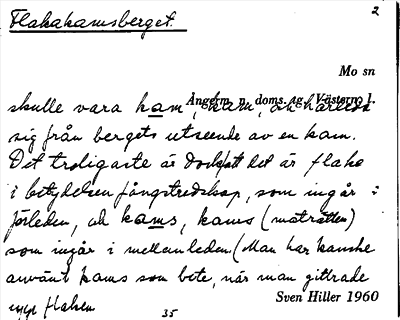 Flakakamsberget.
2
Mo sn
Ångerm. n. doms. ag. Västern. l.
skulle vara kam, kam, och härleda
sig från bergets utseende av en kam.
Det troligaste är dock att det är flake
i betydelsen fångstredskap, som ingår i
förleden, och kams, kams (maträtten)
som ingår i mellanleden. (Man har kanske
använt kams som bete, när man gillrade
upp flaken
Sven Hiller 1960
35